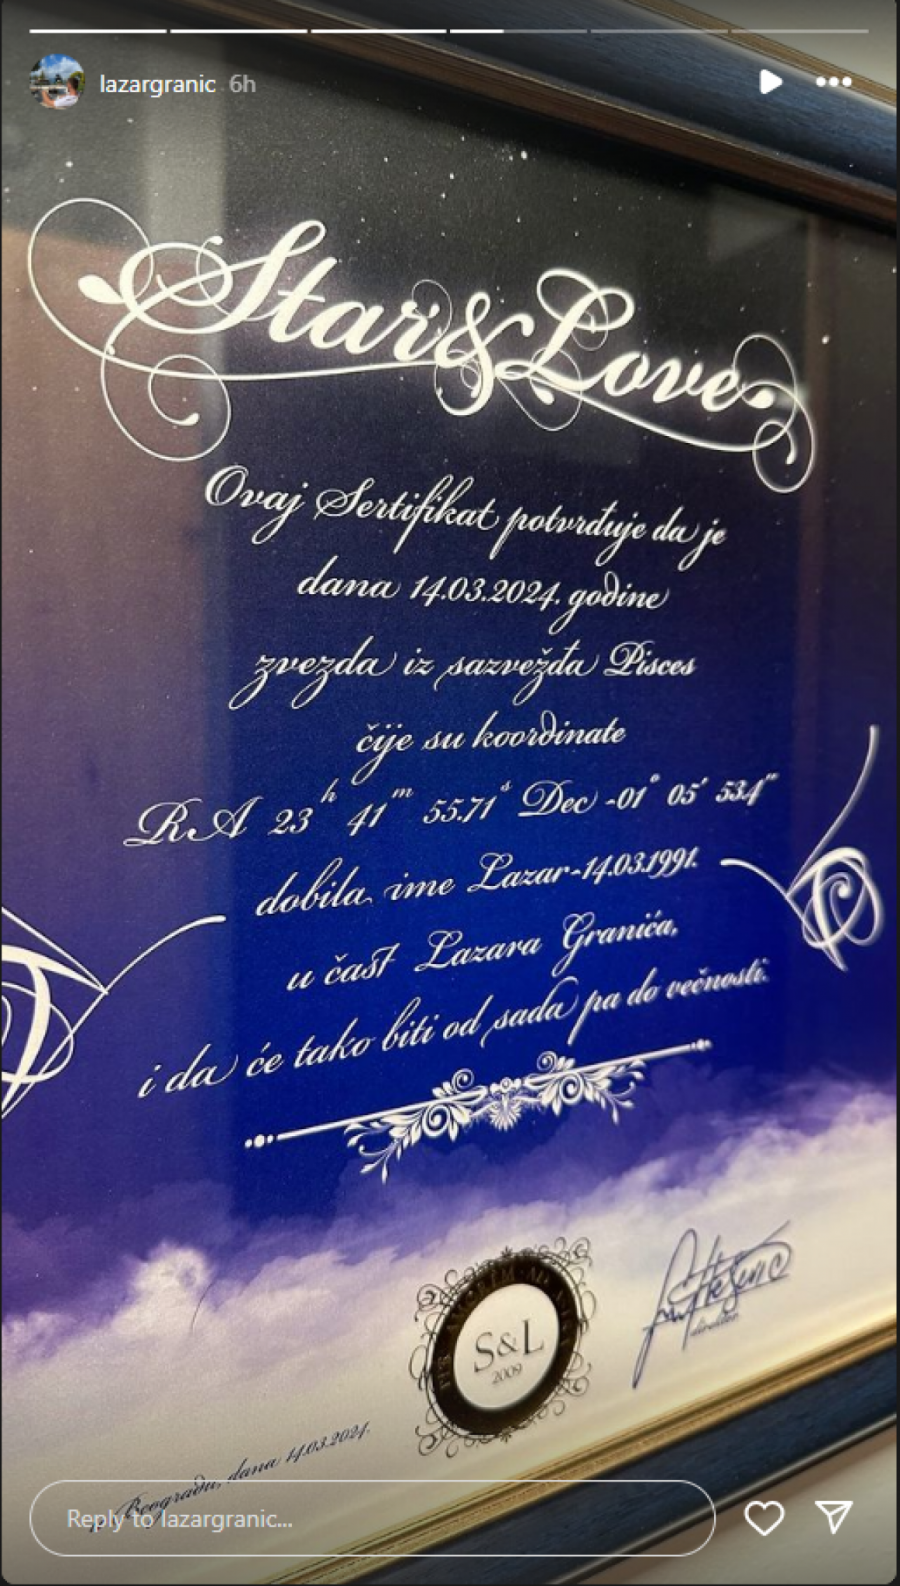 lazargranic 6h
Star&Love
Ovaj Sertifikat potvrđuje da je
dana 14.03.2024. godine
zvezda iz sazvežđa Pisces
čije su koordinate
RA 23h 41m 55.71s Dec -01° 05' 53.4"
dobila ime Lazar-14.03.1991.
u čast Lazara Granića,
i da će tako biti od sada pa do večnosti.
S&L
2009
direktor
Beogradu, dana 14.03.2024.
Reply to lazargranic...